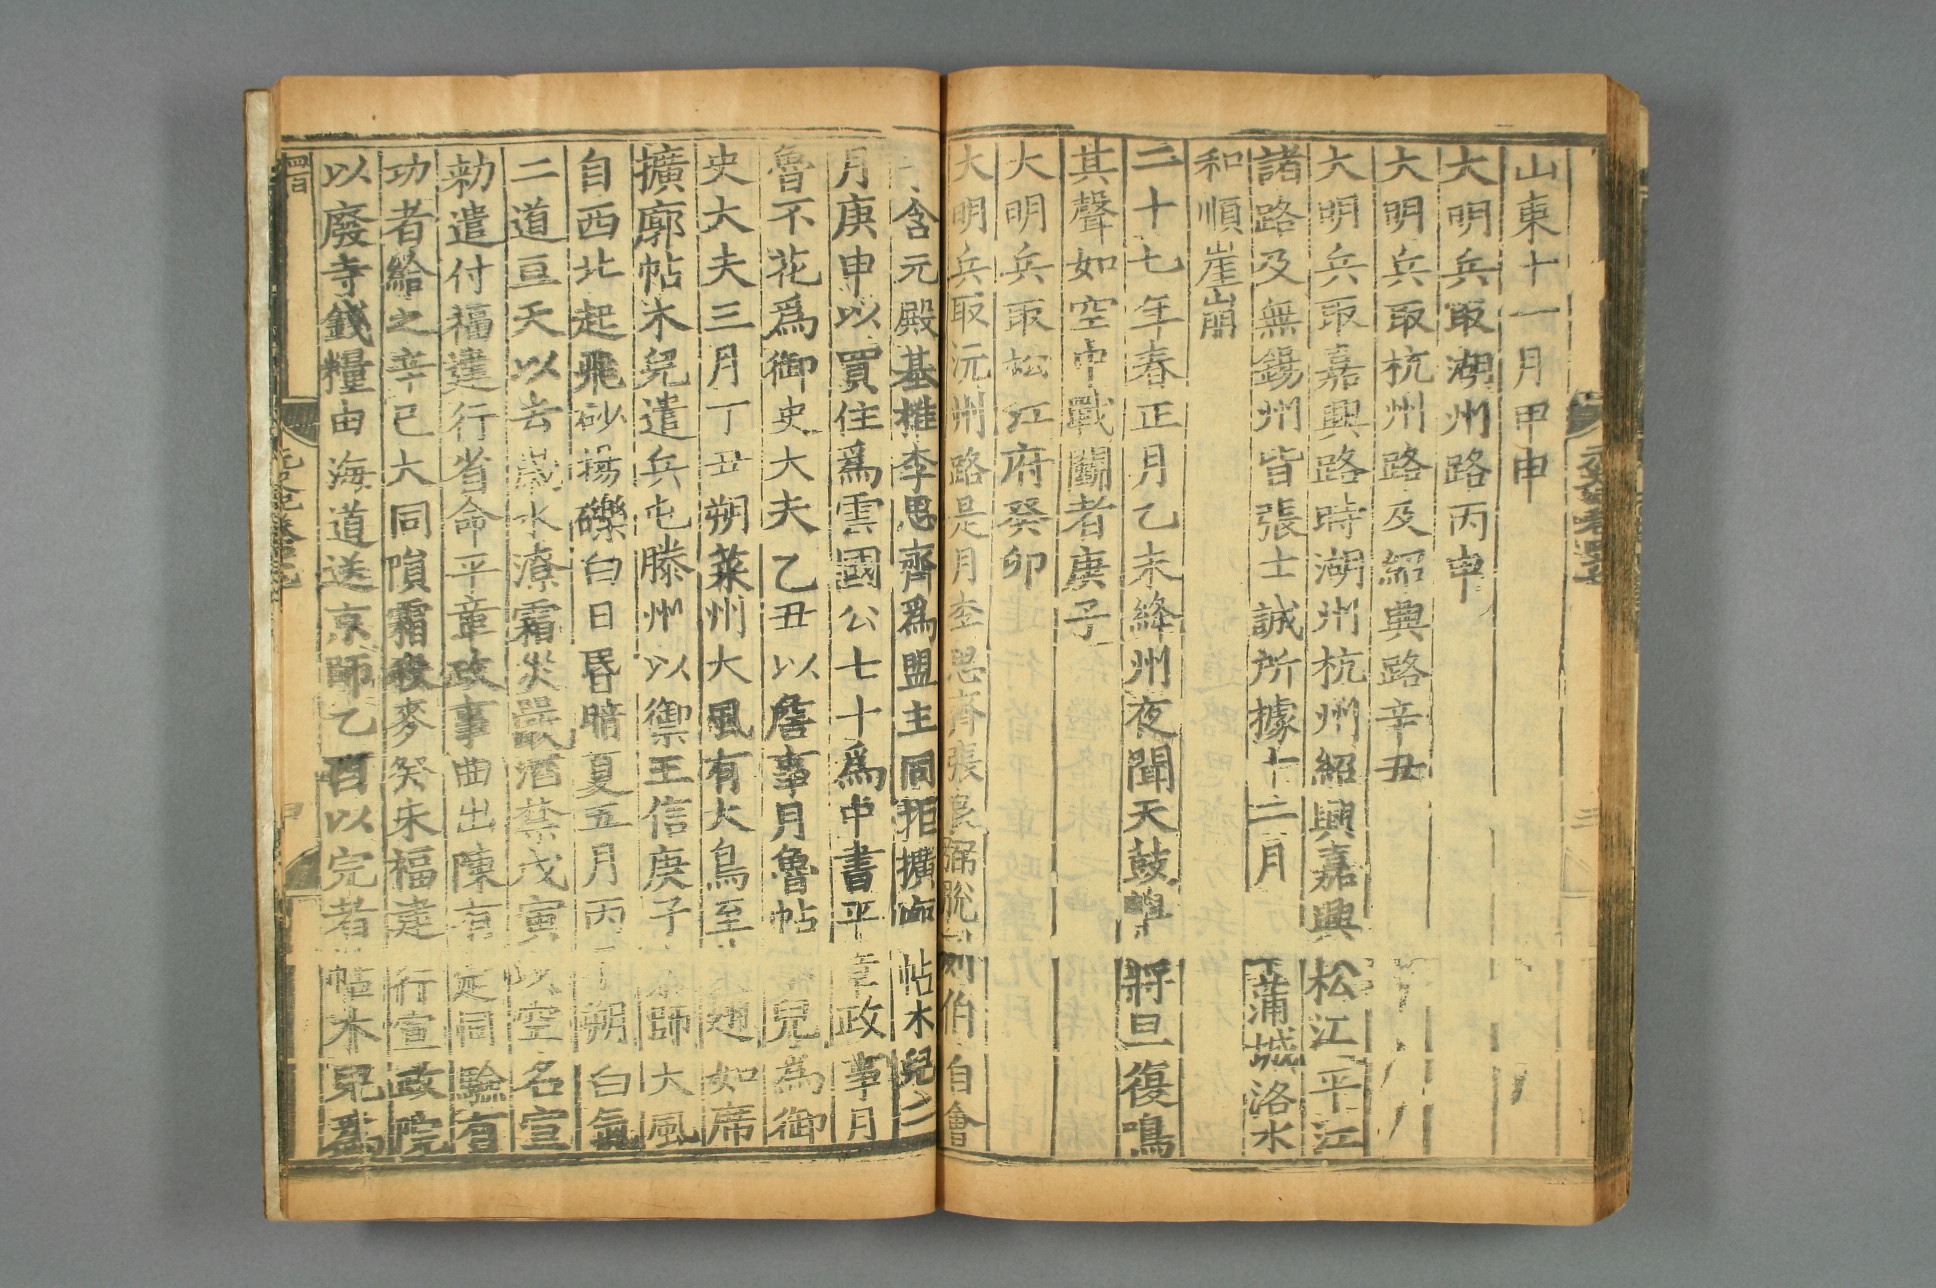 山東十一月甲申
大明兵取湖州路丙申
大明兵取杭州路及紹興路辛丑
大明兵取嘉興路時湖州杭州紹興嘉興松江平江
諸路及無錫州皆張士誠所據十二月蒲城洛水
和順崖崩
二十七年春正月乙未絳州夜聞天鼓鳴將旦復鳴
其聲如空中戰鬭者庚子
大明兵取松江府癸卯
大明兵取沅州路是月李思齊張良弼脫列伯自會
于含元殿基推李思齊爲盟主同拒擴廓帖木兒二
月庚申以買住爲雲國公七十爲中書平章政事月
魯不花爲御史大夫乙丑以詹事月魯帖木兒爲御
史大夫三月丁丑朔萊州大風有大鳥至其翅如席
擴廓帖木兒遣兵屯滕州以禦王信庚子京師大風
自西北起飛砂揚礫白日昏暗夏五月丙子朔白氣
二道亘天以去歲水潦霜災嚴酒禁戊寅以空名宣
勑遣付福建行省命平章政事曲出陳有定同驗有
功者給之辛巳大同隕霜殺麥癸未福建行宣政院
以廢寺錢糧由海道送京師乙酉以完者帖木兒爲